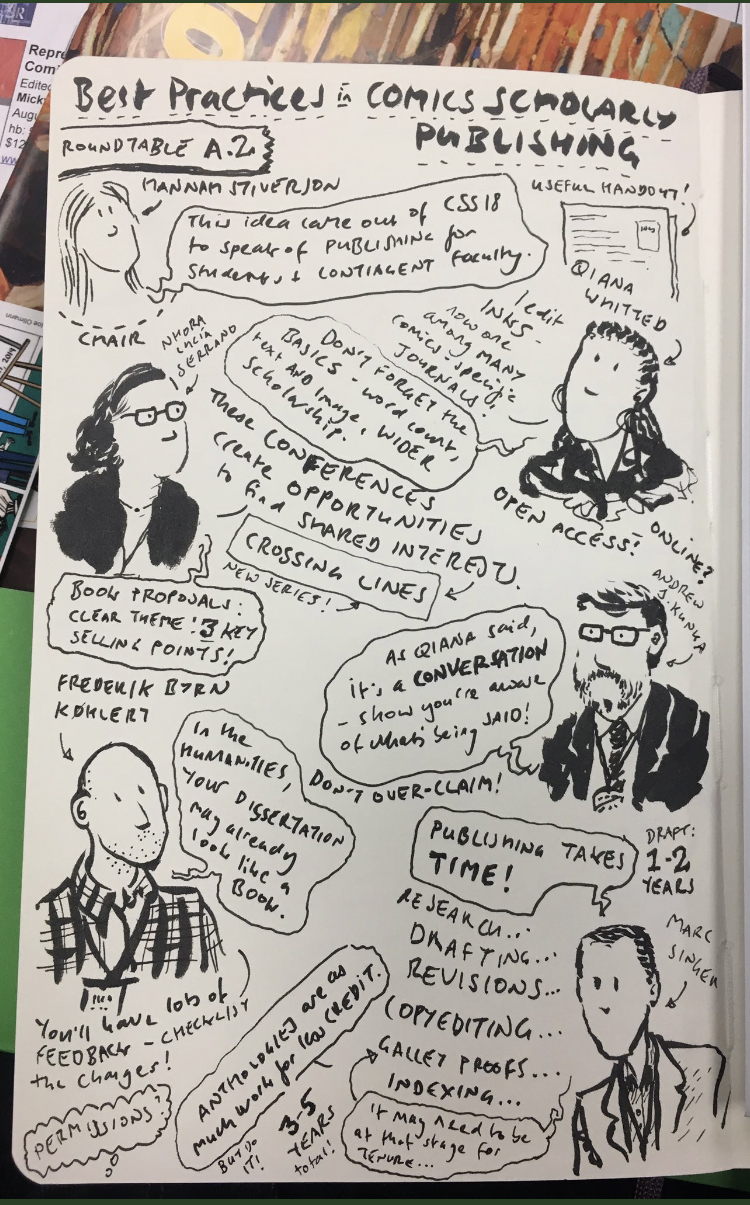 Repre
Comi
Edited
Mick
Augu
hb:
$12
ww
Best Practices in COMICS SCHOLARLY
PUBLISHING
ROUNDTABLE A.2
HANNAH STIVERSON
This idea came out of CSS18
to speak of PUBLISHING for
Students & CONTINGENT faculty.
CHAIR
USEFUL HANDOUT!
QIANA
WHITTED
I edit
INKS -
now one
among MANY
comics-specific
JOURNALS!
NHORA
LUCÍA
SERRANO
DON'T FORGET the
BASICS - word count,
text AND image, WIDER
Scholarship.
These CONFERENCES
create OPPORTUNITIES
to find SHARED INTERESTS.
OPEN ACCESS!
ONLINE?
CROSSING LINES
NEW SERIES!
BOOK PROPOSALS:
CLEAR THEME! 3 KEY
SELLING POINTS!
ANDREW
J. KUNKA
AS QIANA said,
it's a CONVERSATION
- show you're aware
of what's being SAID!
DON'T OVER-CLAIM!
FREDERIK BYRN
KØHLERT
In the
HUMANITIES,
YOUR DISSERTATION
may already
look like a
BOOK.
PUBLISHING TAKES
TIME!
DRAFT:
1-2
YEARS
MARC
SINGER
RESEARCH...
DRAFTING...
REVISIONS...
COPYEDITING...
GALLEY PROOFS...
INDEXING...
It may need to be
at that stage for
TENURE...
You'll have lots of
FEEDBACK - CHECKLIST
the changes!
PERMISSIONS?
ANTHOLOGIES are as
much work for less CREDIT.
BUT DO
IT!
3-5
YEARS
total!